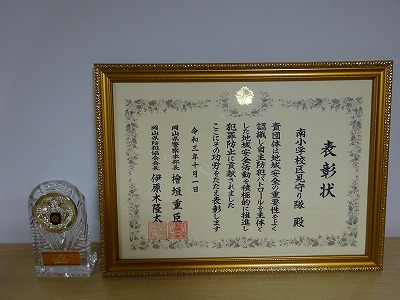 表彰状
南小学校区見守り隊 殿
貴団体は地域安全の重要性をよく
認識し自主防犯パトロールを主体と
した地域安全活動を積極的に推進し
犯罪防止に貢献されました
ここにその功労をたたえ表彰します
令和三年十月一日
岡山県警察本部長 檜垣重臣
岡山県防犯協会会長 伊原木隆太